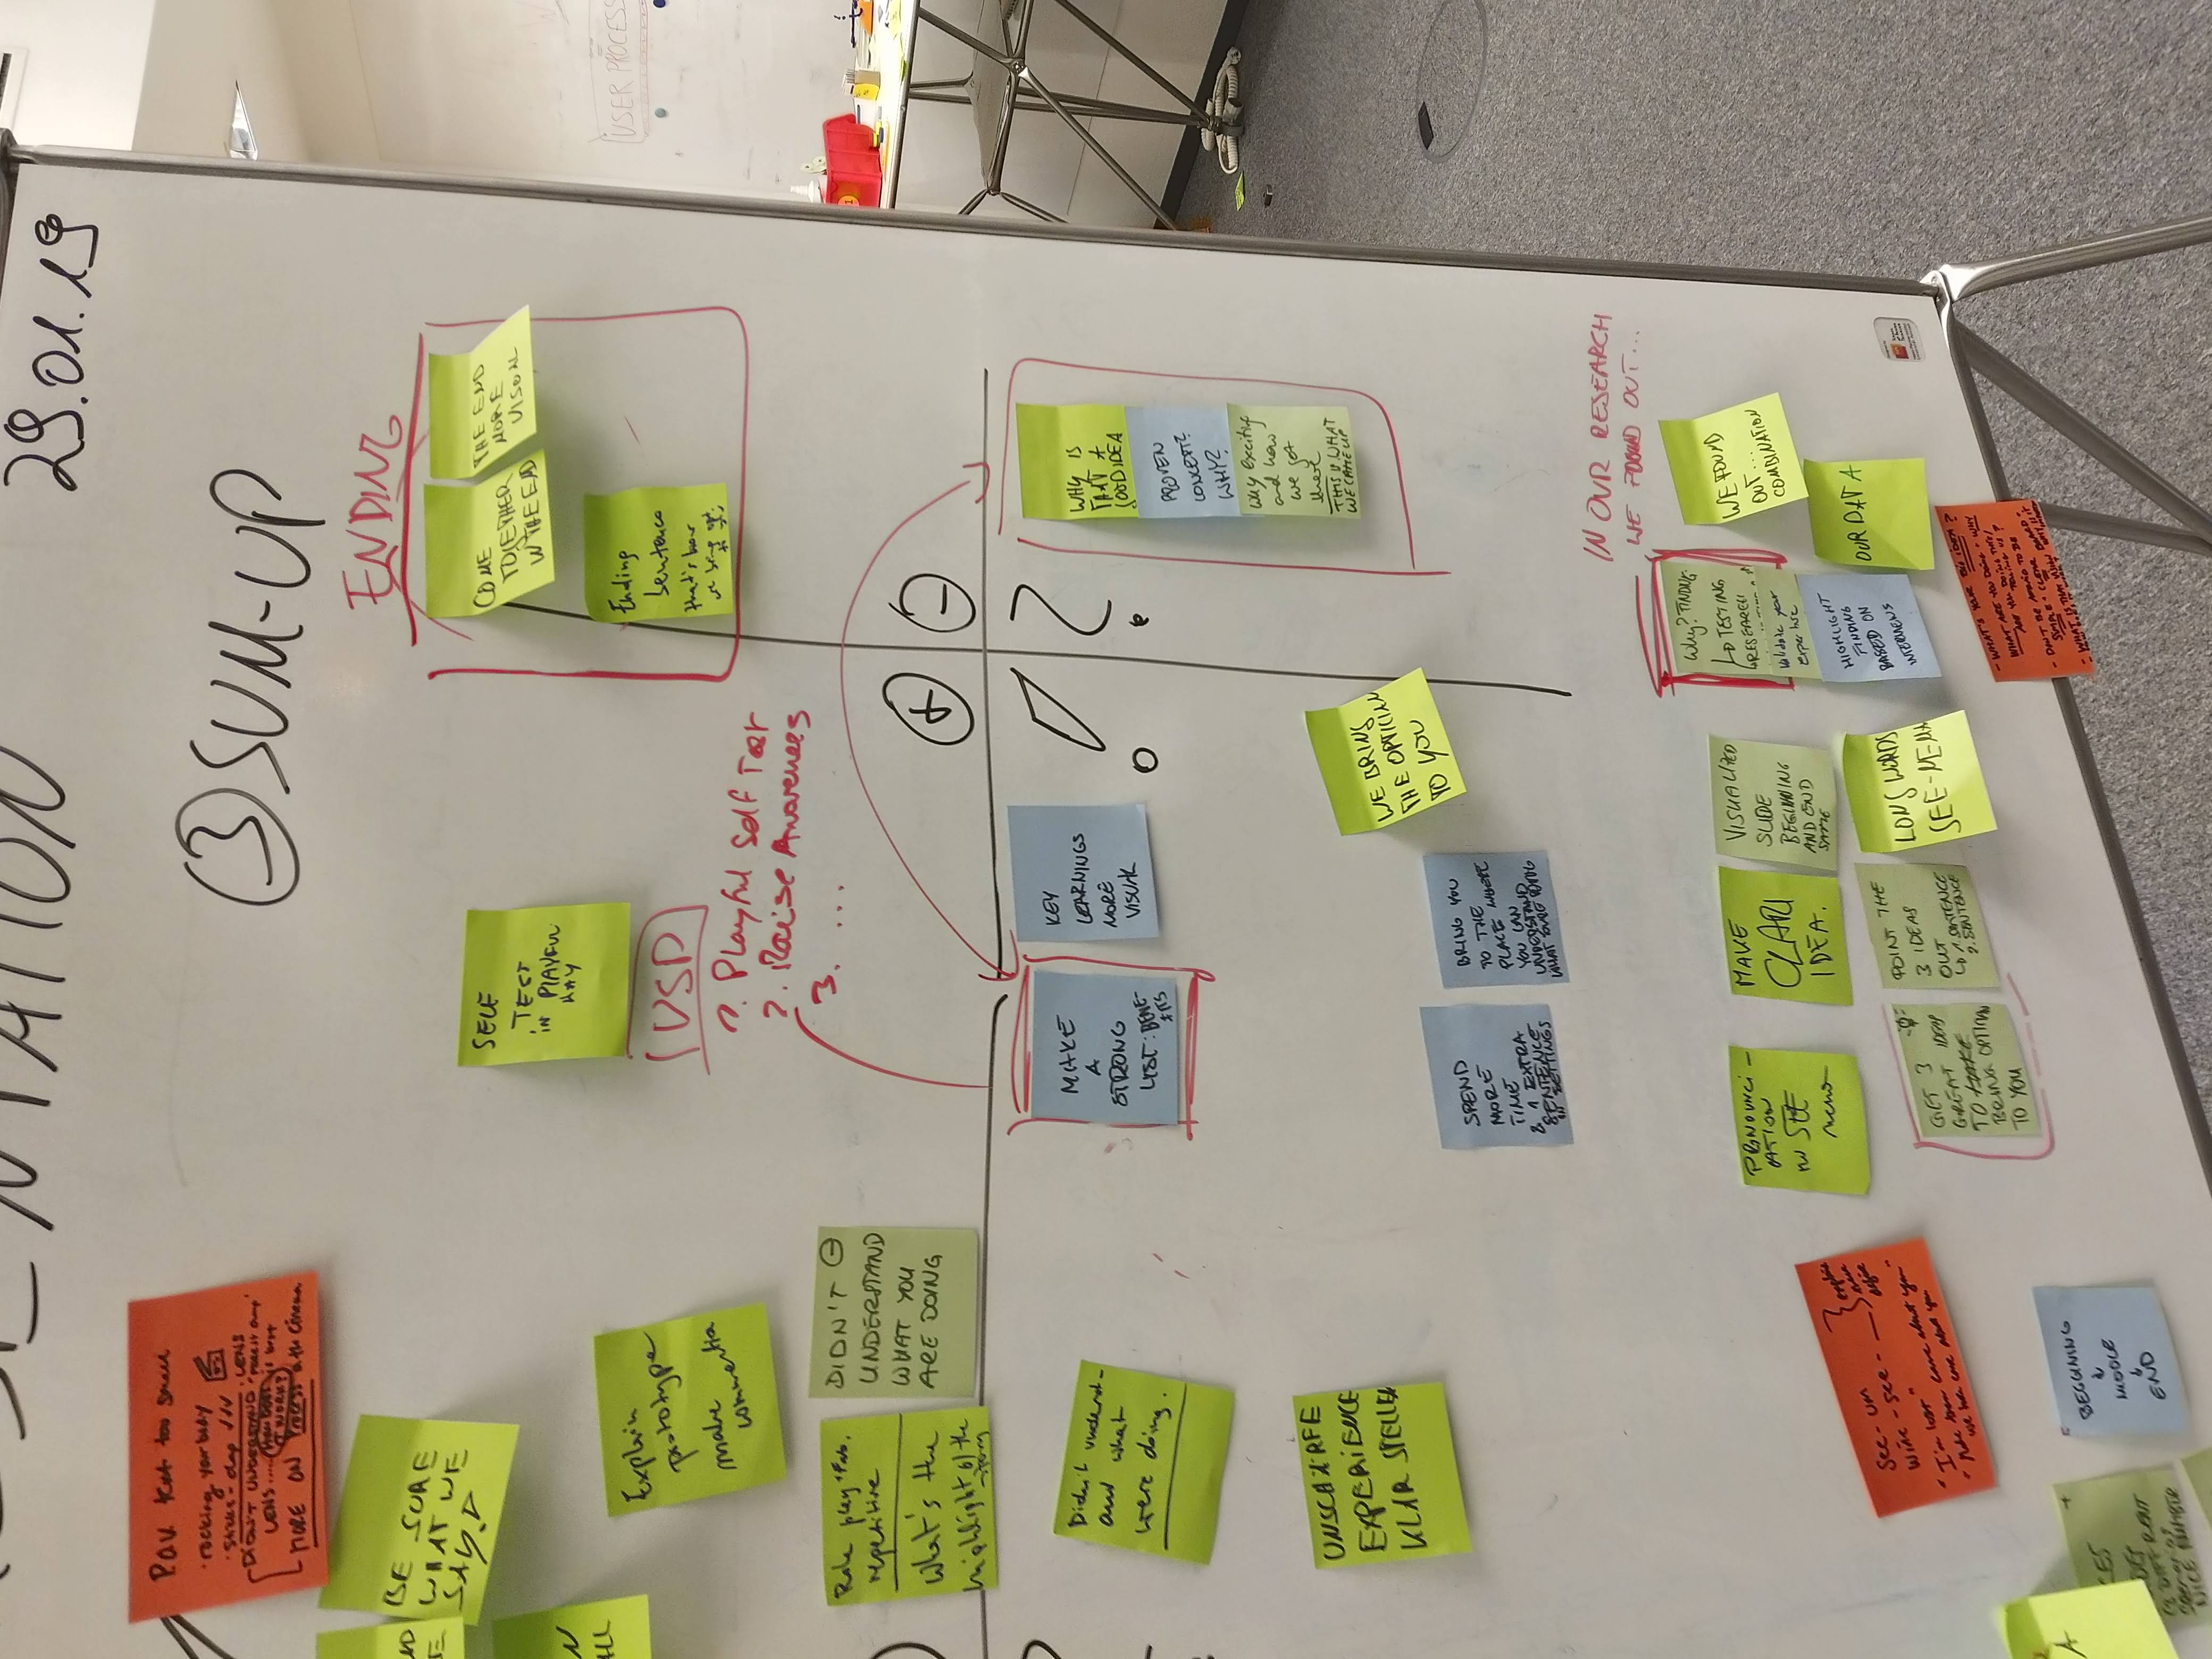 NTATION
29.01.19
③ SUM-UP
P.O.V. text too small
· rocking your body
· Sticks - clap
DIDN'T UNDERSTAND
LENS
LENS ....
HOW DOES
IT WORK?
is best
MORE ON PROCESS in the Cinema
BE SURE
WHAT WE
SAY!
ALL
Explain
prototype
make
commertia
Role play + Fab.
repetitive
What's the
highlight of the
story
DIDN'T ⊖
UNDERSTAND
WHAT YOU
ARE DOING
Didn't underst-
and what
were doing.
UNSCHÄRFE
EXPERIENCE
KLAR SPELLEN
SELF
TEST
IN PLAYFUL
WAY
USP
1. Playful Self Test
2. Raise Awareness
3. ....
ENDING
COME
TOGETHER
IN THE END
THE END
MORE
VISUAL
Ending
Sentence
that's how
we bring opt.
to you
+
-
!
?
MAKE
A
STRONG
LIST: BENE-
FITS
KEY
LEARNINGS
MORE
VISUAL
WHY IS
THAT A
GOOD IDEA
PROVEN
CONCEPT?
WHY?
why exciting
and how
we got
there
THIS IS WHAT
WE CAME UP
WE BRING
THE OPTICIAN
TO YOU
SPEND
MORE
TIME
& 1 EXTRA
SENTENCE
IN SETTINGS
BRING YOU
TO THE
PLACE WHERE
YOU CAN
UNDERSTAND
WHAT YOU'RE DOING
IN OUR RESEARCH
WE FOUND OUT...
Why? FINDING
TESTING
RESEARCH
Validate your
expertise
WE FOUND
OUT...
COMBINATION
HIGHLIGHT
FINDING
BASED ON
INTERVIEWS
OUR DATA
PRONOUNCI-
ATION
SEE
MAKE
CLARI
IDEA.
VISUALIZED
SLIDE
BEGINNING
AND END
SAME
GET 3
GREAT IDEAS
TO MAKE
BRING OPTICIAN
TO YOU
POINT THE
3 IDEAS
OUT
1. SENTENCE
2. SENTENCE
LONG WORDS
SEE-NEMA
See-um
Wine-see-
explain
before
"I'm lost"
- Make them care about you"
we care about you
- WHAT'S YOUR BIG IDEA?
WHAT ARE YOU DOING + WHY
ARE YOU DOING THIS/
TELLING US?
- DON'T BE AFRAID TO BE
SIMPLE + CLEAR
- WHAT IS THAT VISION BOARD -
BEGGINING
↓
MIDDLE
↓
END
A
DIFFERENT
Scenarios
NICE NUMBER
USER PROCESS